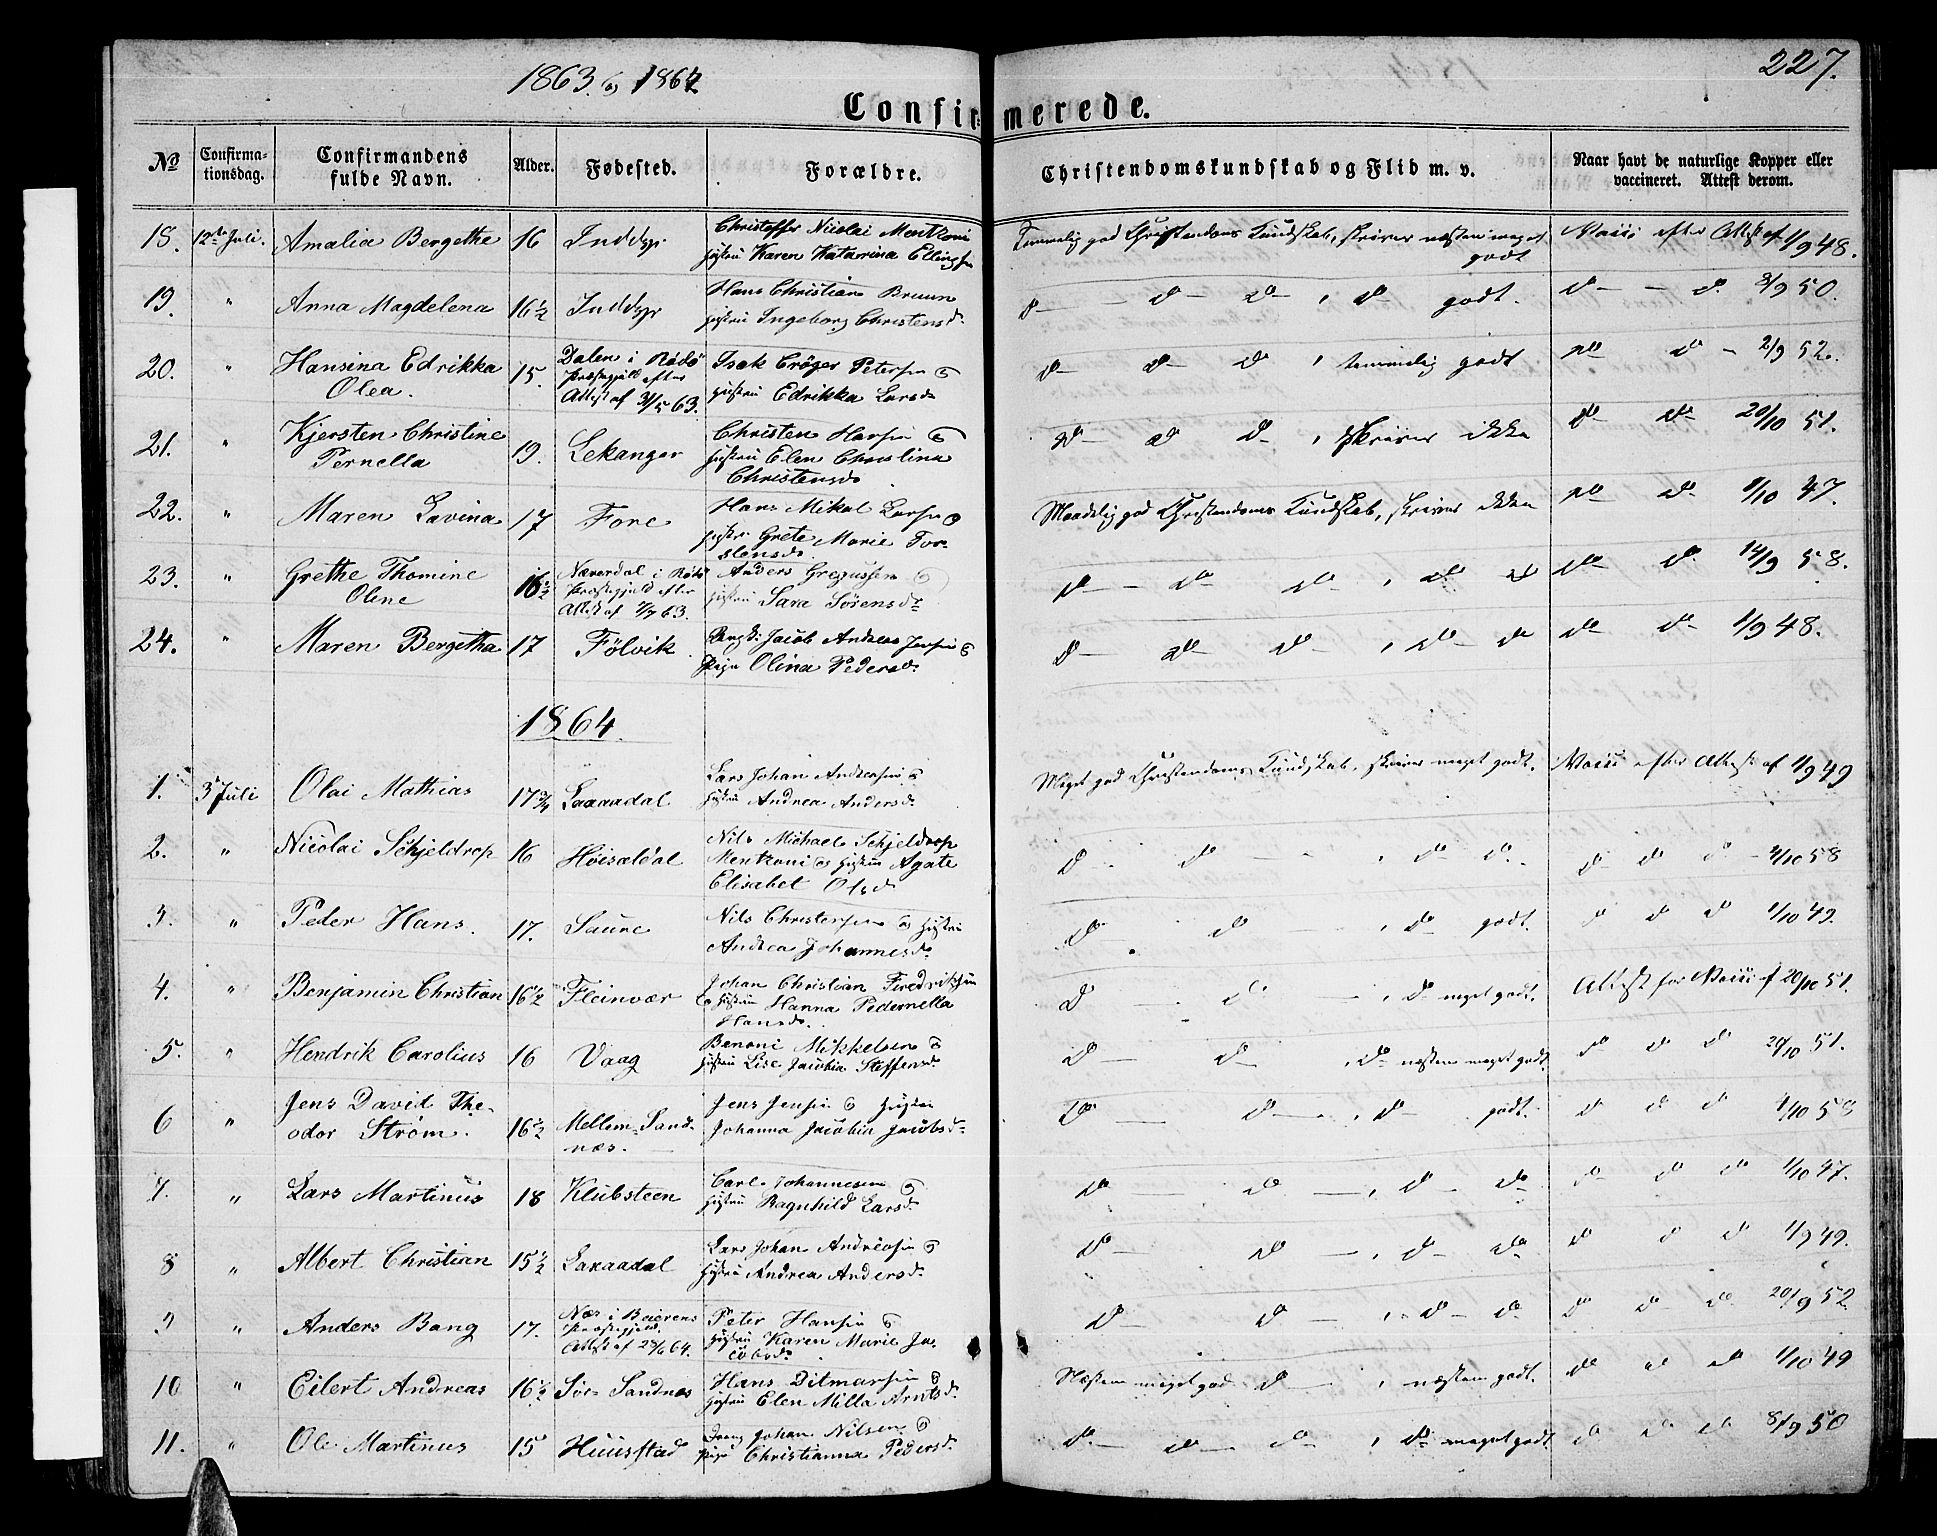 1863 og 1864
227.
Confirmerede.
No
Confirma-
tionsdag.
Confirmandens
fulde Navn.
Alder.
Fødested.
Forældre.
Christendomskundskab og Flid m. v.
Naar havt de naturlige Kopper eller
vaccineret. Attest derom.
18. 12te Juli. Amalia Bergethe 16 Inddyr Christoffer Nicolai Mentzoni
Hustru Karen Katarina Ellingsdr
Temmelig god Christendoms Kundskab, skriver næsten meget
godt
Vacc efter Attest af 1/9 48.
19. " Anna Magdelena 16 1/2 Inddyr Hans Christian Bruun
Hustru Ingeborg Christensd.
do do do , do godt. do - do 3/9 50.
20. " Hansina Edrikka
Olea.
15. Dalen i Rødø
Præstegjeld efter
Attest af 31/5 63.
Isak Crøger Petersen &
Hustru Edrikka Larsd.
do do do , temmelig godt do do - 2/9 52.
21. " Kjersten Christine
Pernella
19. Lekanger Christen Hansen &
Hustru Elen Christina
Christensd.
do do do , skriver ikke do do 20/10 51.
22. " Maren Lavina 17 Fore Hans Mikal Larsen &
Hustru Grete Marie Tor-
stensd.
Maadelig god Christendoms Kundskab, skriver ikke do do 1/10 47.
23. " Grethe Thomine
Oline
16 1/2 Næverdal i Rødø
Præstegjeld efter
Attest af 7/7 63.
Anders Gregussen &
Hustru Sara Sørensdr
do - do do , do do do do 14/9 58.
24. " Maren Bergetha 17 Følvik Ungk: Jacob Andreas Jensen &
Pige Olina Pedersd.
do do do , do do do do 1/9 48.
1864.
1. 3 Juli Olai Mathias 17 3/4 Laxaadal Lars Johan Andreasen &
Hustru Andrea Andersd.
Meget god Christendoms Kundskab, skriver meget godt. Vacc efter Attest af 1/9 49
2. " Nicolai Schjeldrop 16 Høisældal Nils Michael Schjeldrop
Mentzoni & Hustru Agate
Elisabet Olsd
do do , do do. do do do - 4/10 58
3. " Peder Hans. 17. Saure Nils Christensen & Hustru
Andrea Johannesd.
do do , do godt. do do do 1/10 49.
4. " Benjamin Christian 16 1/2 Fleinvær Johan Christian Fredriksen
& Hustru Hanna Pedernella
Hansd.
do do , do meget godt. Attest for Vacc af 20/10 51.
5. " Hendrik Carolius 16 Vaag Benoni Mikkelsen &
Hustru Lise Jacobia Steffensd.
do do , do næsten meget godt. do do do 20/10 51.
6 " Jens David The-
odor Strøm.
16 1/2 Mellem-Sand-
næs.
Jens Jensen & Hustru
Johanna Jacobia Jacobsd.
do do , do godt. do do do 4/10 58
7. " Lars Martinus 18 Klubsteen Carl Johannesen &
Hustru Ragnhild Larsd.
do do , do do do do do 1/10 47.
8 " Albert Christian 15 1/2 Laxaadal Lars Johan Andreasen &
Hustru Andrea Andersd.
do do , do do do do do 1/9 49.
9 " Anders Bang 17. Næs i Beierens
Præstegjeld.
Attest af 25/6 64.
Peter Hansen &
Hustru Karen Marie Ja-
cobsd.
do do , do do do do do 20/9 52.
10 " Eilert Andreas 16 1/2 Sør-Sandnæs Hans Ditmarsen &
Hustru Elen Milla Arntsd.
Næsten meget god do , næsten godt. do do do 1/10 49
11. " Ole Martinus 15 Huusstad Dreng Johan Nilsen &
Pige Christianna Pedersd.
do do do , do meget godt do do do 8/9 50